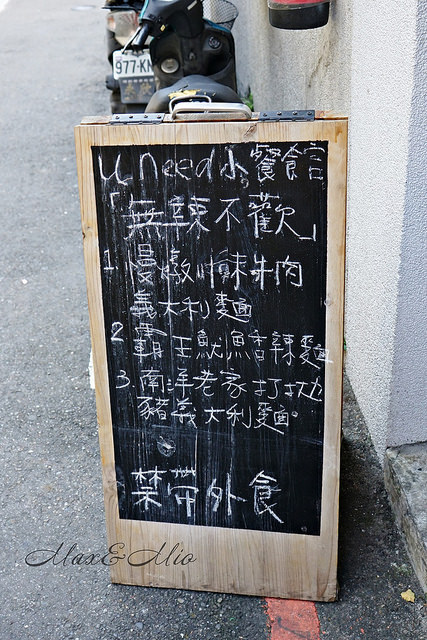 977-KN
U need小餐館
「無辣不歡」
1.慢燉川辣牛肉
義大利麵
2霸王魷魚香辣麵
3.南洋老家打拋
豬義大利麵。
禁帶外食
Max & Mio